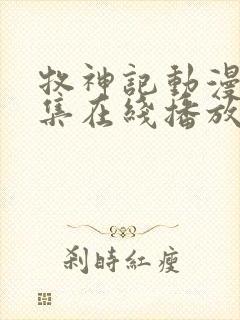 牧神記動漫
集在綫播放
刹時紅瘦